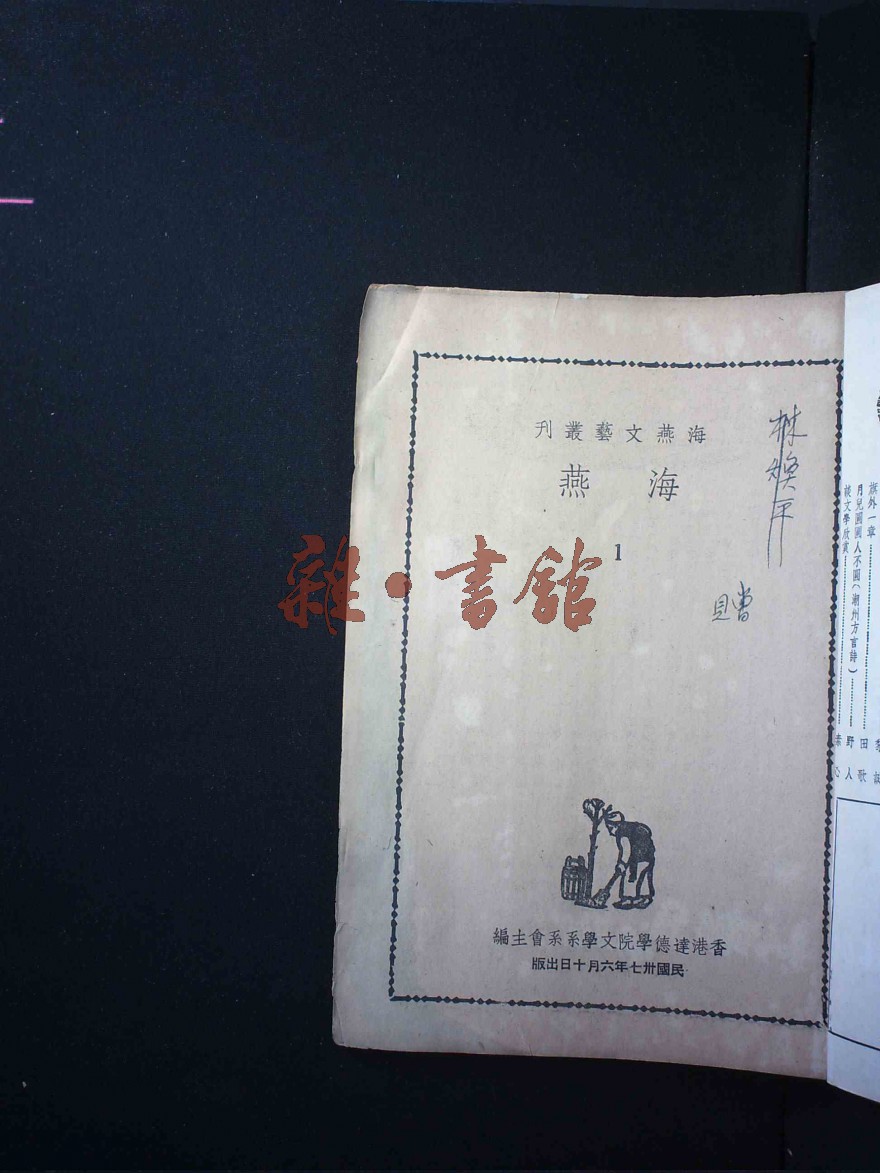 海燕文藝叢刊
海燕
1
林煥平
雜·書館
香港達德學院文學系系會主編
民國卅七年六月十日出版
旗外一章 田歌
月兒圓圓人不圓(潮州方言詩) 野人
談文學欣賞 素心